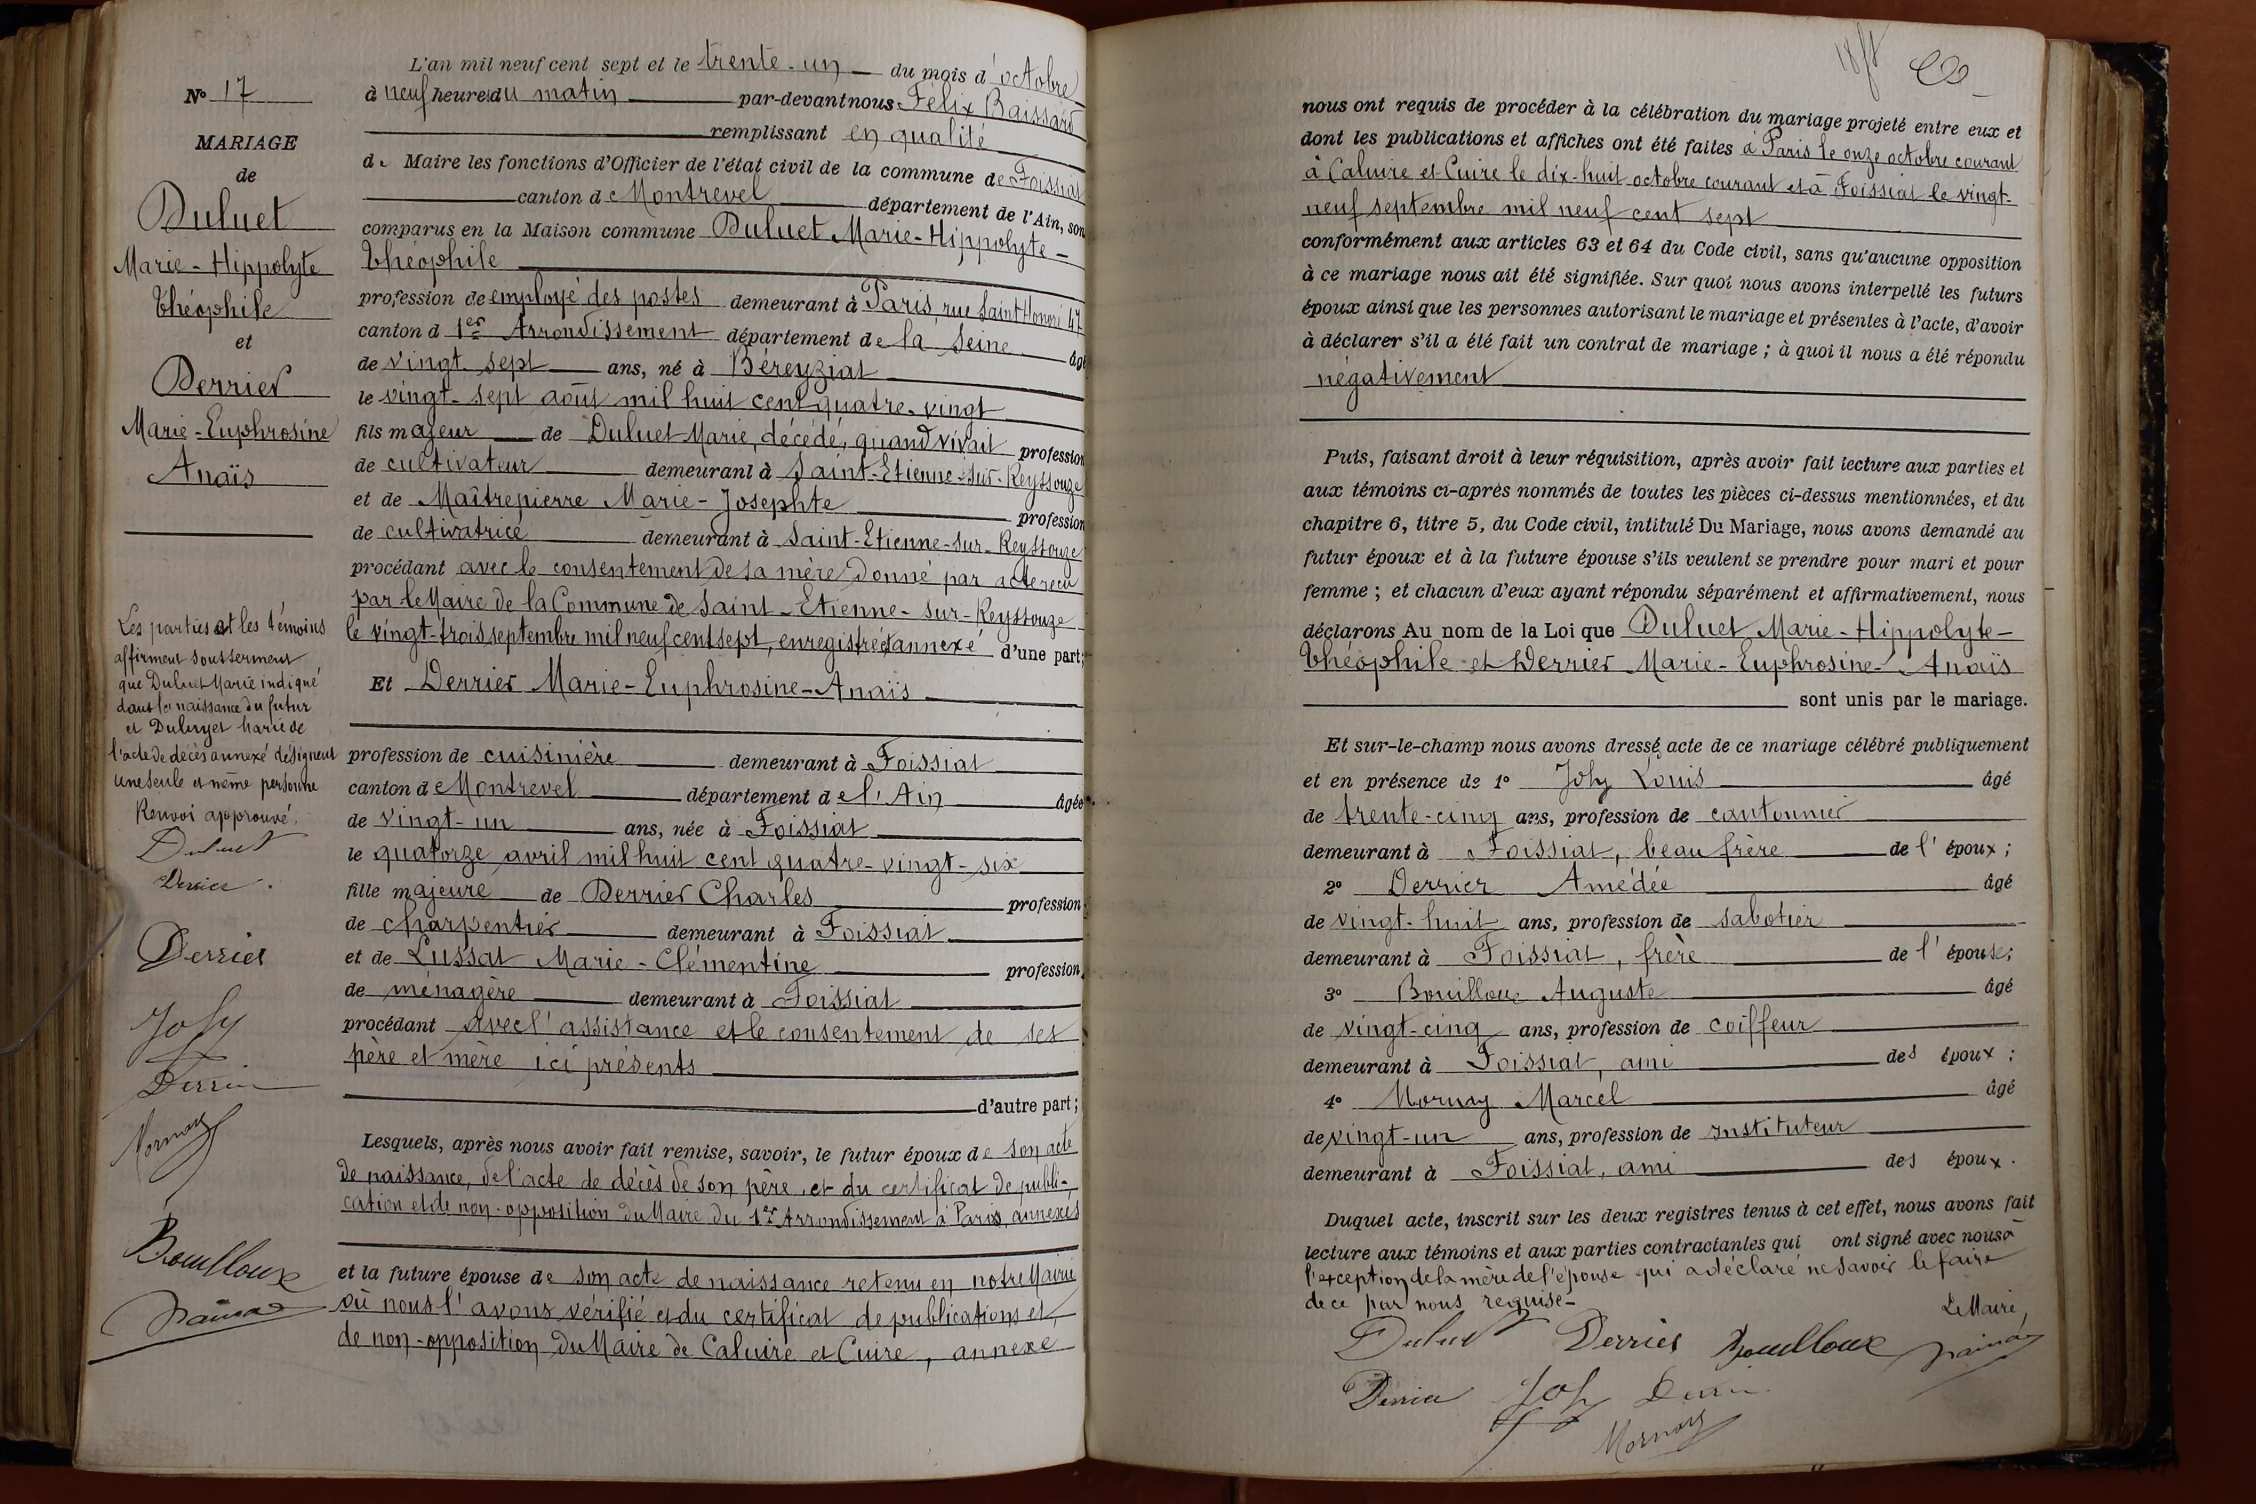 N° 17
MARIAGE
de
Duluet
Marie-Hippolyte
Théophile
et
Derrier
Marie-Euphrosine
Anaïs
Les parties et les témoins
affirment sous serment
que Duluet Marie indiqué
dans la naissance du futur
et Duluyet Marie de
l'acte de décès annexé désignent
une seule et même personne
Renvoi approuvé.
Duluet
Derrier
Derrier
Joly
Derrier
Mornay
Bouilloux
L'an mil neuf cent sept et le trente-un du mois d'octobre
à neuf heures du matin par-devant nous Félix Baissard
remplissant en qualité
de Maire les fonctions d'Officier de l'état civil de la commune de Foissiat
canton de Montrevel département de l'Ain, son
comparus en la Maison commune Duluet Marie-Hippolyte-
Théophile
profession de employé des postes demeurant à Paris, rue Saint Honoré 47
canton d 1er Arrondissement département de la Seine âgé
de vingt-sept ans, né à Béreyziat
le vingt-sept août mil huit cent quatre-vingt
fils majeur de Duluet Marie, décédé, quand vivait profession
de cultivateur demeurant à Saint-Etienne-sur-Reyssouze
et de Maîtrepierre Marie-Josephte profession
de cultivatrice demeurant à Saint-Etienne-sur-Reyssouze
procédant avec le consentement de sa mère donné par acte reçu
par le Maire de la Commune de Saint-Etienne-sur-Reyssouze
le vingt-trois septembre mil neuf cent sept, enregistré et annexé d'une part;
Et Derrier Marie-Euphrosine-Anaïs
profession de cuisinière demeurant à Foissiat
canton de Montrevel département de l'Ain âgée
de vingt-un ans, née à Foissiat
le quatorze avril mil huit cent quatre-vingt-six
fille majeure de Derrier Charles profession
de charpentier demeurant à Foissiat
et de Lussat Marie-Clémentine profession
de ménagère demeurant à Foissiat
procédant avec l'assistance et le consentement de ses
père et mère ici présents
d'autre part;
Lesquels, après nous avoir fait remise, savoir, le futur époux de son acte
de naissance, de l'acte de décès de son père, et du certificat de publi-
cation et de non-opposition du Maire du 1er Arrondissement à Paris, annexés
et la future épouse de son acte de naissance retenu en notre Mairie
où nous l'avons vérifié et du certificat de publications et
de non-opposition du Maire de Caluire et Cuire, annexé
nous ont requis de procéder à la célébration du mariage projeté entre eux et
dont les publications et affiches ont été faites à Paris le onze octobre courant
à Caluire et Cuire le dix-huit octobre courant et à Foissiat le vingt-
neuf septembre mil neuf cent sept
conformément aux articles 63 et 64 du Code civil, sans qu'aucune opposition
à ce mariage nous ait été signifiée. Sur quoi nous avons interpellé les futurs
époux ainsi que les personnes autorisant le mariage et présentes à l'acte, d'avoir
à déclarer s'il a été fait un contrat de mariage; à quoi il nous a été répondu
négativement
Puis, faisant droit à leur réquisition, après avoir fait lecture aux parties et
aux témoins ci-après nommés de toutes les pièces ci-dessus mentionnées, et du
chapitre 6, titre 5, du Code civil, intitulé Du Mariage, nous avons demandé au
futur époux et à la future épouse s'ils veulent se prendre pour mari et pour
femme; et chacun d'eux ayant répondu séparément et affirmativement, nous
déclarons Au nom de la Loi que Duluet Marie-Hippolyte-
Théophile et Derrier Marie-Euphrosine-Anaïs
sont unis par le mariage.
Et sur-le-champ nous avons dressé acte de ce mariage célébré publiquement
et en présence de 1° Joly Louis âgé
de trente-cinq ans, profession de cantonnier
demeurant à Foissiat, beau frère de l'époux;
2° Derrier Amédée âgé
de vingt-huit ans, profession de sabotier
demeurant à Foissiat, frère de l'épouse;
3° Bouilloux Auguste âgé
de vingt-cinq ans, profession de coiffeur
demeurant à Foissiat, ami des époux;
4° Mornay Marcel âgé
de vingt-un ans, profession de Instituteur
demeurant à Foissiat, ami des époux.
Duquel acte, inscrit sur les deux registres tenus à cet effet, nous avons fait
lecture aux témoins et aux parties contractantes qui ont signé avec nous à
l'exception de la mère de l'épouse qui a déclaré ne savoir le faire
de ce par nous requise-
Le Maire,
Duluet Derrier Bouilloux
Derrier Joly Derrier
Mornay